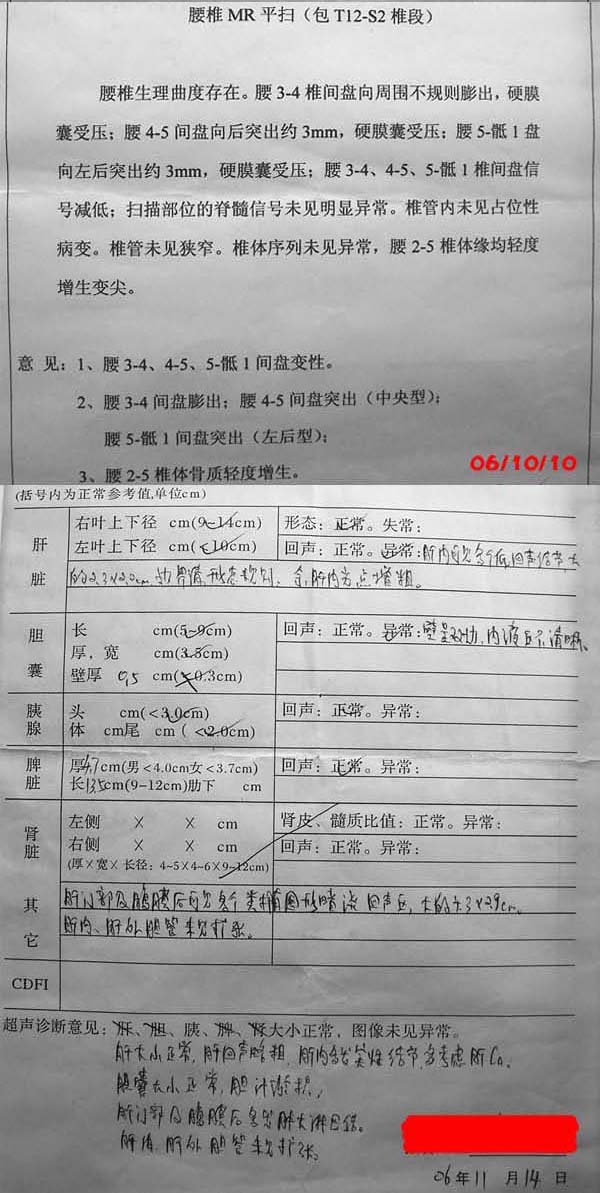 腰椎 MR 平扫（包 T12-S2 椎段）
腰椎生理曲度存在。腰 3-4 椎间盘向周围不规则膨出，硬膜
囊受压；腰 4-5 间盘向后突出约 3mm，硬膜囊受压；腰 5-骶 1 盘
向左后突出约 3mm，硬膜囊受压；腰 3-4、4-5、5-骶 1 椎间盘信
号减低；扫描部位的脊髓信号未见明显异常。椎管内未见占位性
病变。椎管未见狭窄。椎体序列未见异常，腰 2-5 椎体缘均轻度
增生变尖。
意 见：1、腰 3-4、4-5、5-骶 1 间盘变性。
2、腰 3-4 间盘膨出；腰 4-5 间盘突出（中央型）；
腰 5-骶 1 间盘突出（左后型）；
3、腰 2-5 椎体骨质轻度增生。
06/10/10
(括号内为正常参考值,单位cm)
肝脏
右叶上下径 cm(9~14cm) 形态：正常。失常：
左叶上下径 cm(<10cm) 回声：正常。异常：肝内可见多个低回声结节,大
的2.3×2.0cm,边界清,形态规则,余肝内光点增粗。
胆囊
长 cm(5~9cm) 回声：正常。异常：壁呈双边,内液区不清晰。
厚，宽 cm(3.5cm)
壁厚 0.5 cm(<0.3cm)
胰腺
头 cm(<3.0cm) 回声：正常。异常：
体 cm尾 cm（<2.0cm)
脾脏
厚4.7cm(男<4.0cm女<3.7cm) 回声：正常。异常：
长13.5cm(9~12cm)肋下 cm
肾脏
左侧 × × cm 肾皮、髓质比值：正常。异常：
右侧 × × cm 回声：正常。异常：
(厚×宽×长径：4~5×4~6×9~12cm)
其它
肝门部及胰腺后可见多个类椭圆形暗淡回声区,大的4.3×2.9cm。
肝内、肝外胆管未见扩张。
CDFI
超声诊断意见：肝、胆、胰、脾、肾大小正常，图像未见异常。
肝大小正常,肝回声略粗,肝内多发实性结节,多考虑肝Ca。
胆囊大小正常,胆汁淤积。
肝门部及胰腺后多发肿大淋巴结。
肝内、肝外胆管未见扩张。
06年11月14日